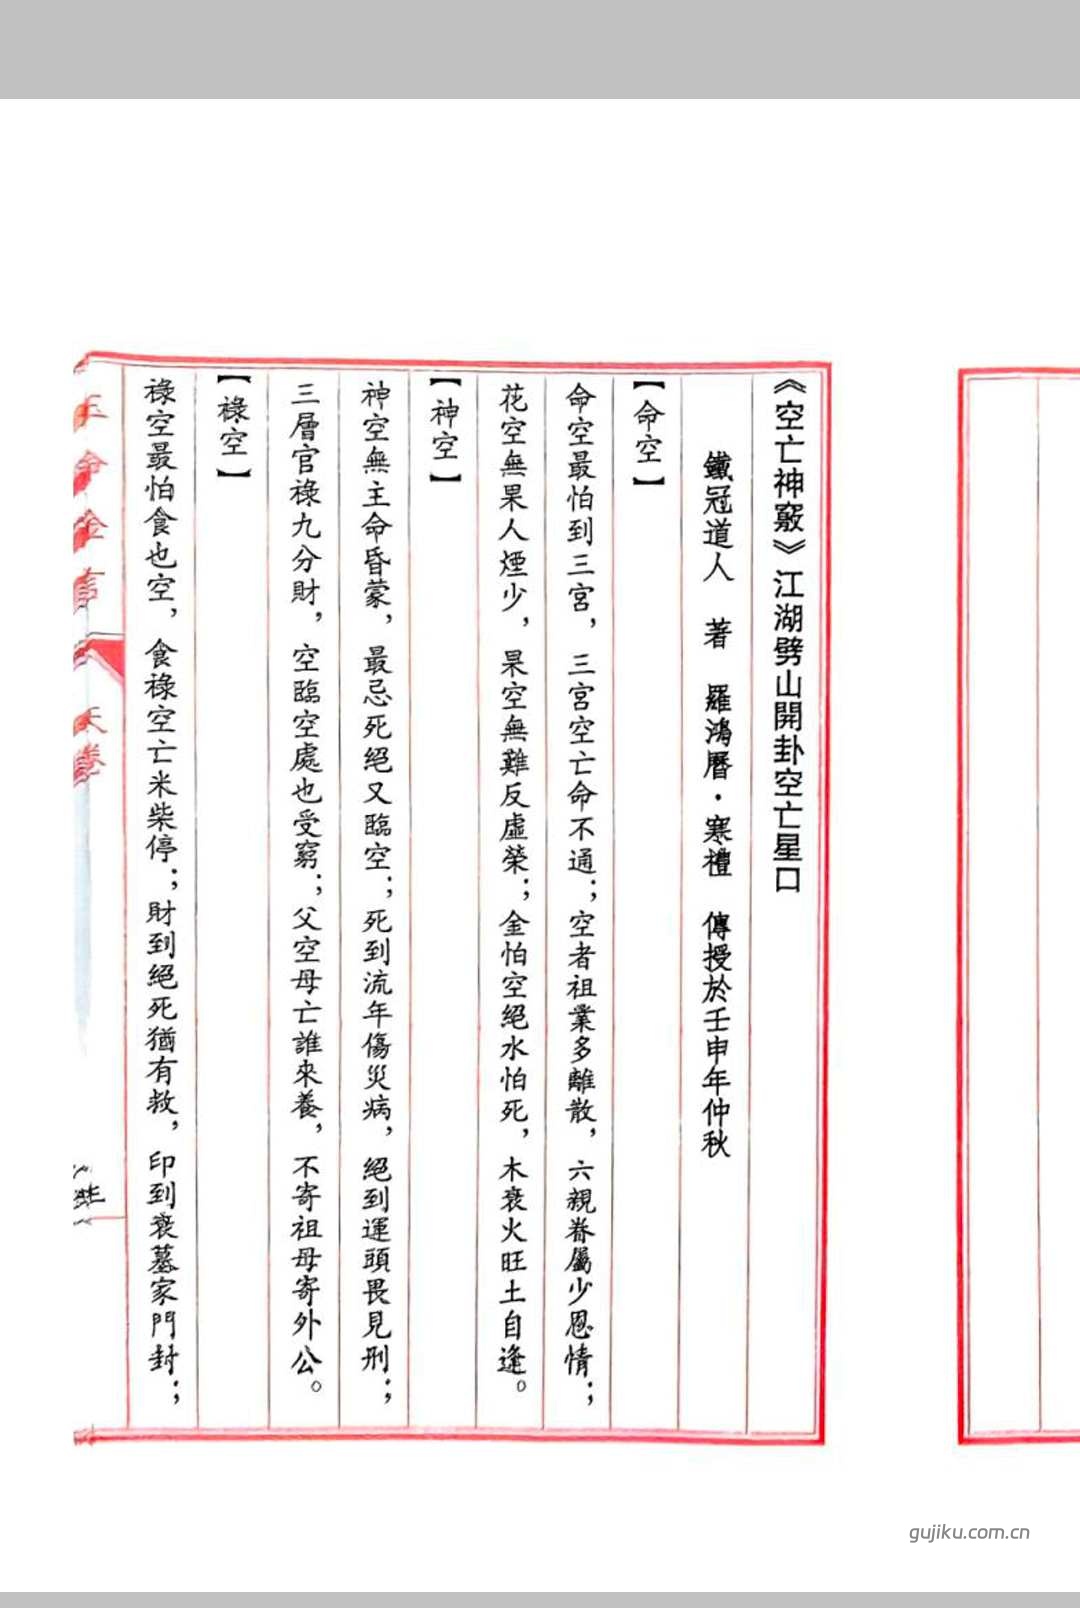 《空亡神竅》江湖劈山開卦空亡星口
鐵冠道人 著 羅鴻曆·寒禮 傳授於壬申年仲秋
【命空】
命空最怕到三宮，三宮空亡命不通；空者祖業多離散，六親眷屬少恩情；
花空無果人煙少，果空無難反虛榮；金怕空絕水怕死，木衰火旺土自逢。
【神空】
神空無主命昏蒙，最忌死絕又臨空；死到流年傷災病，絕到運頭畏見刑；
三層官祿九分財，空臨空處也受窮；父空母亡誰來養，不寄祖母寄外公。
【祿空】
祿空最怕食也空，食祿空亡米柴停；財到絕死猶有救，印到衰墓家門封；
gujiku.com.cn